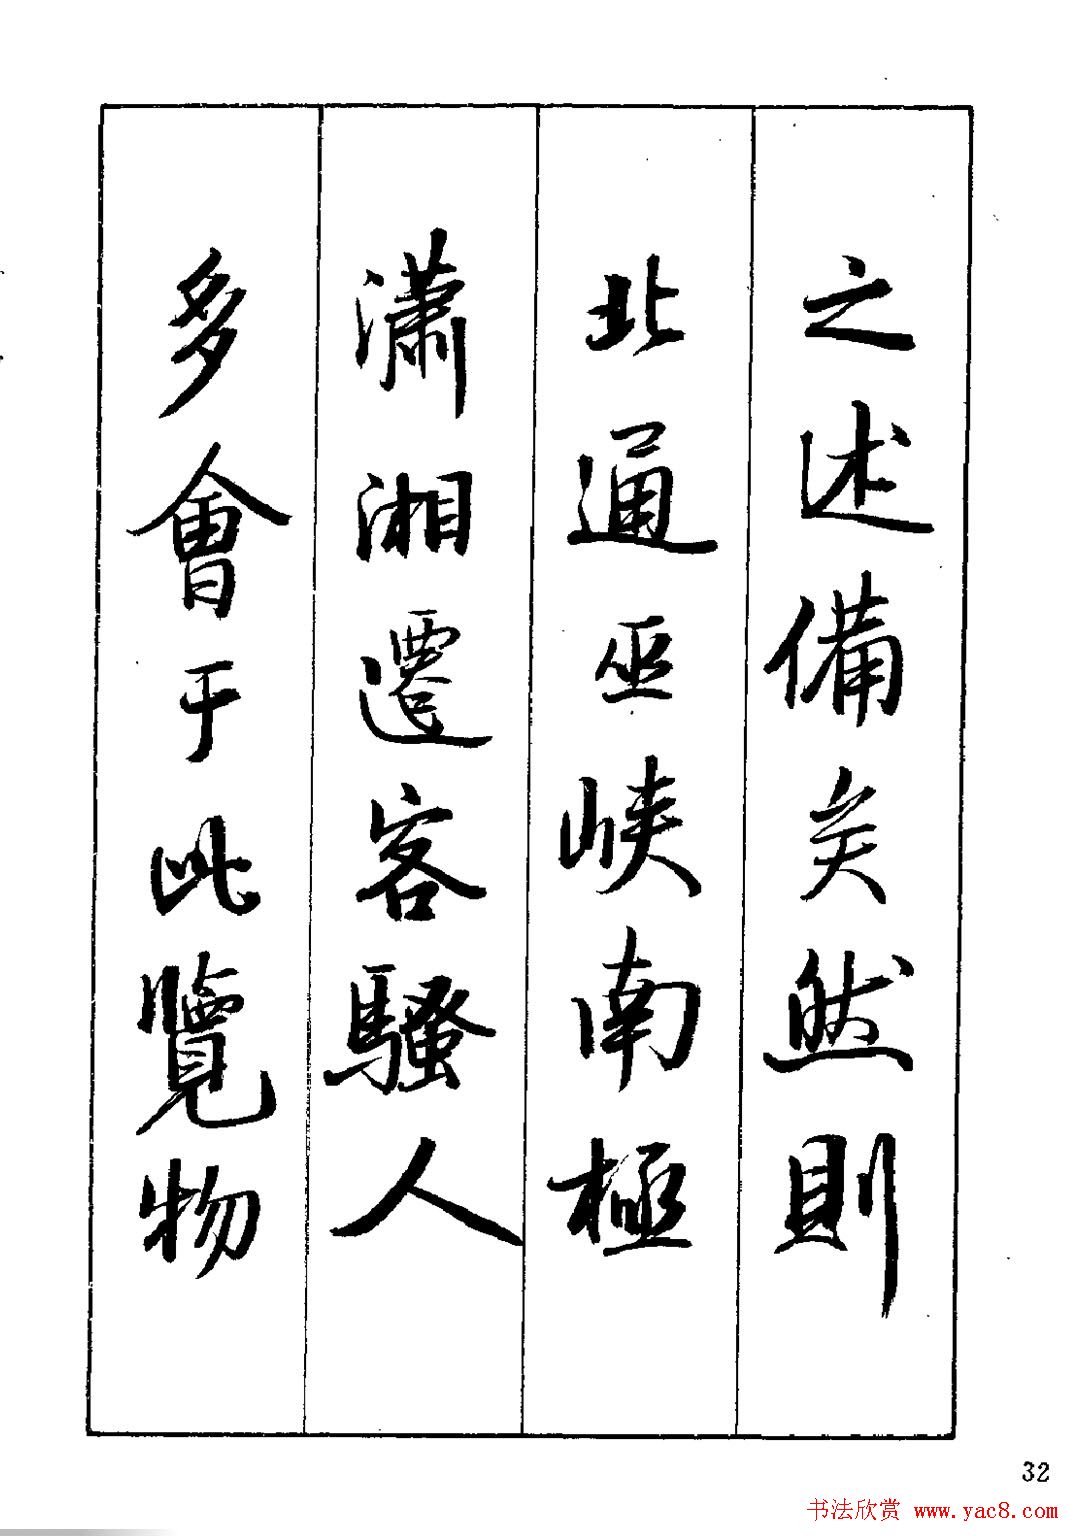 之述備矣然則
北通巫峽南極
瀟湘遷客騷人
多會于此覽物
32
书法欣赏 www.yac8.com